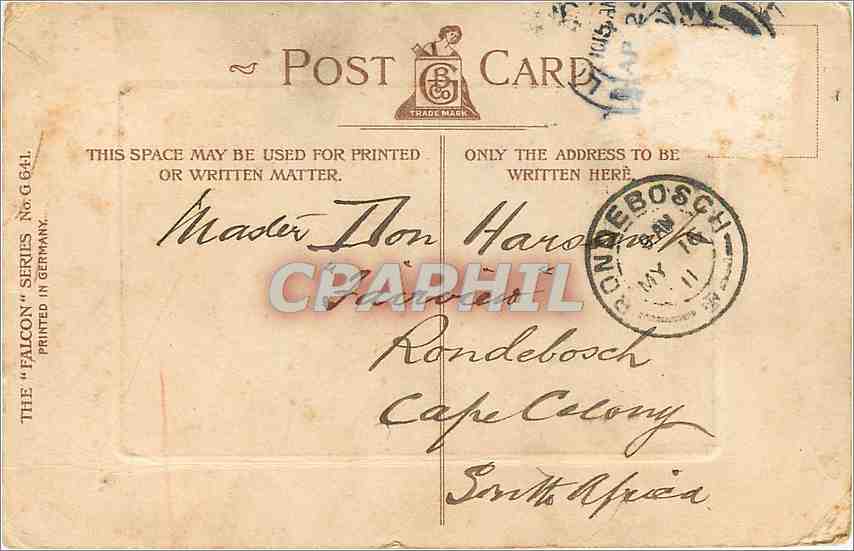 POST CARD
G B & Co
TRADE MARK
THIS SPACE MAY BE USED FOR PRINTED
OR WRITTEN MATTER.
ONLY THE ADDRESS TO BE
WRITTEN HERE.
THE "FALCON" SERIES No. G 641.
PRINTED IN GERMANY.
Master Don
"Fairview"
Rondebosch
Cape Colony
South Africa
RONDEBOSCH
MY 16
11
10.15 AM
AP 2
CPAPHIL